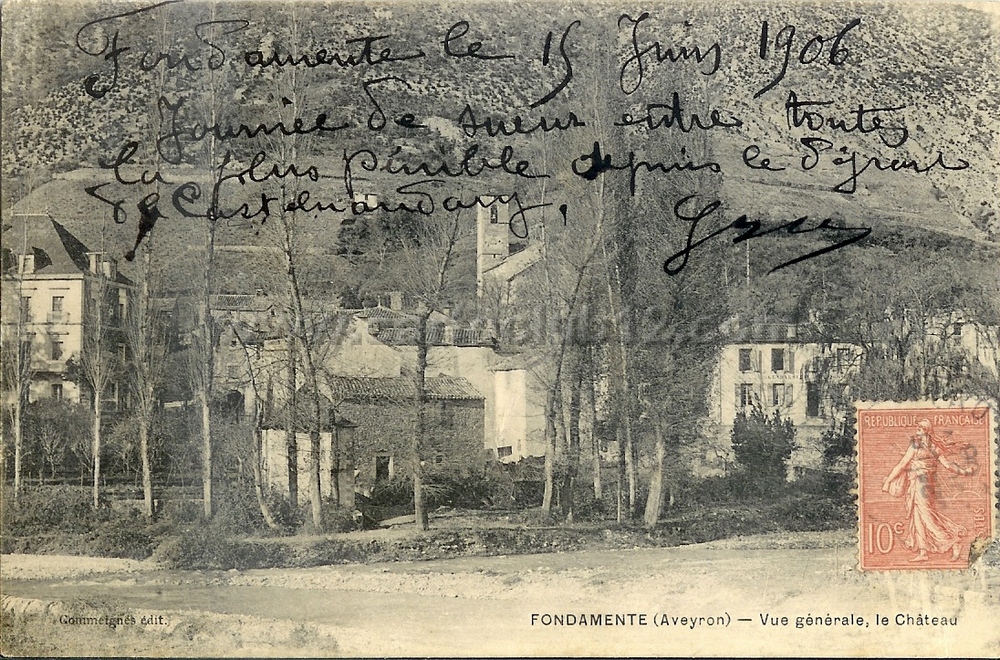 Fondamente le 15 Juin 1906
Journée de sueur entre toutes
la plus pénible depuis le départ
de Castelnaudary.
REPUBLIQUE FRANÇAISE
10c
POSTES
Commeignes édit.
FONDAMENTE (Aveyron) — Vue générale, le Château